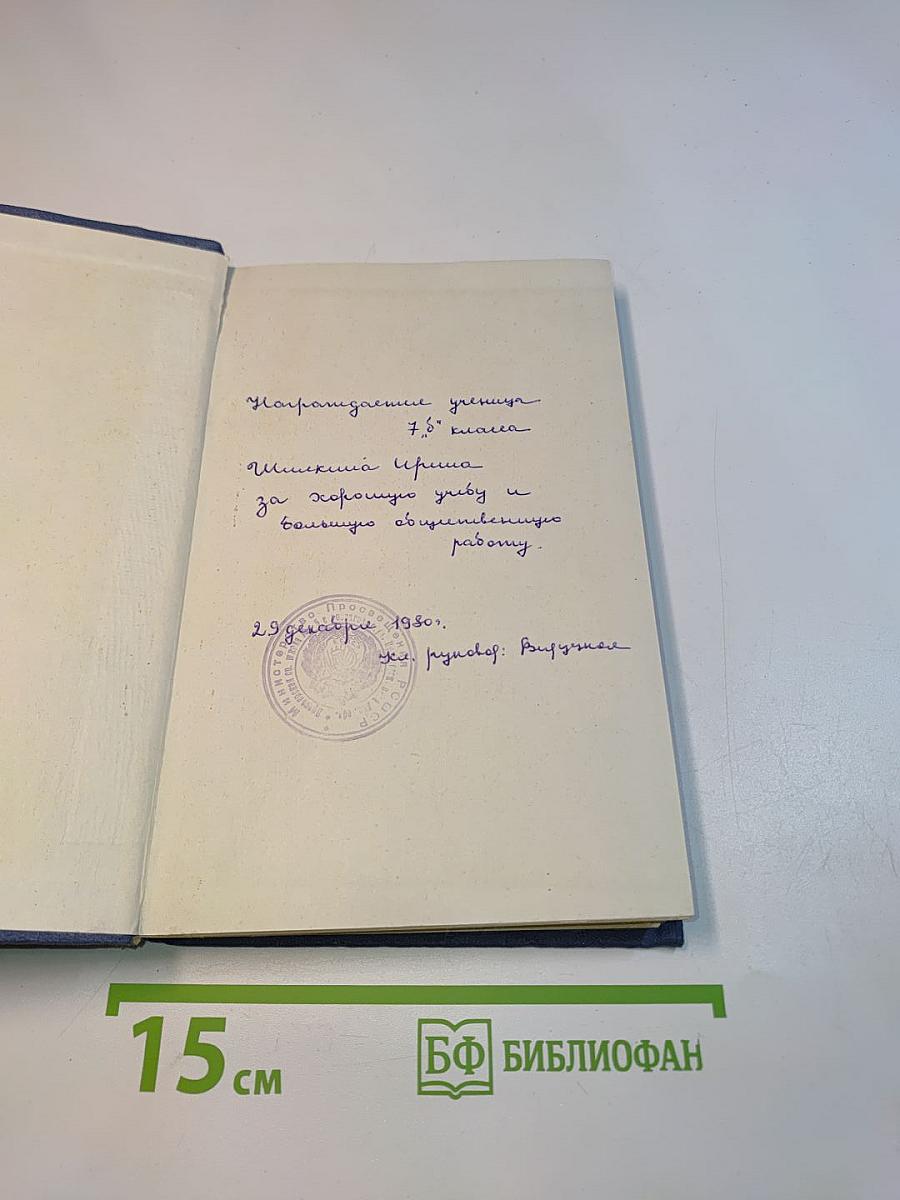 Награждается ученица
7 „б" класса
Шилкина Ирина
за хорошую учебу и
большую общественную
работу.
29 декабря 1980 г.
Кл. руковод:
Министерство Просвещения РСФСР
15 см
БФ БИБЛИОФАН